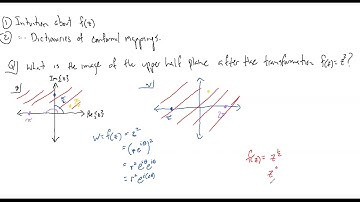 ① Intuition about f(z)
② Dictionaries of conformal mappings.
Q) What is the image of the upper half plane after the transformation f(z)=z²?
Im{z}
Re{z}
w=f(z)=z²
=(re^{iθ})²
=r²e^{iθ}e^{iθ}
=r²e^{i(2θ)}